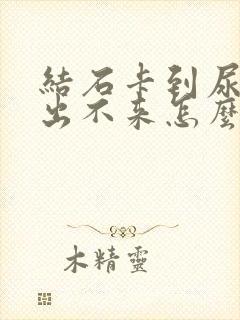 結石卡到尿
出不來怎麼
木精靈